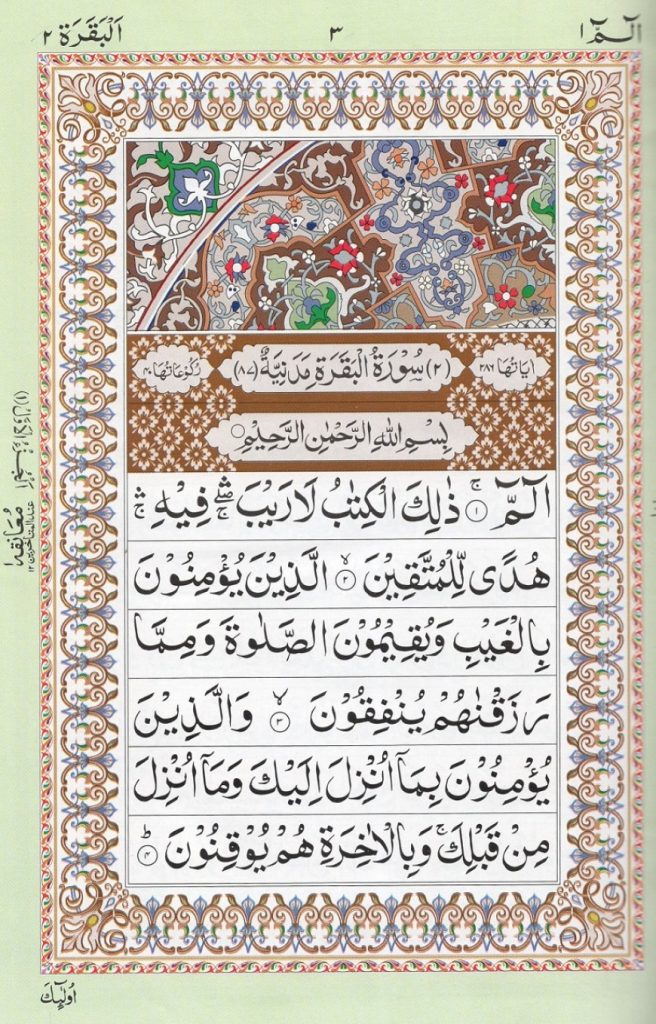 الٓمّٓ ١
٣
اَلْبَقَرَة ٢
اٰيَاتُهَا ٢٨٦
(٢) سُوْرَةُ الْبَقَرَةِ مَدَنِيَّةٌ (٨٧)
رُكُوْعَاتُهَا ٤٠
بِسْمِ اللّٰهِ الرَّحْمٰنِ الرَّحِيْمِ
الٓمّٓ ۚ ١ ذٰلِكَ الْكِتٰبُ لَا رَيْبَ ۛۖ فِيْهِ ۛ
هُدًى لِّلْمُتَّقِيْنَ ۙ ٢ الَّذِيْنَ يُؤْمِنُوْنَ
بِالْغَيْبِ وَيُقِيْمُوْنَ الصَّلٰوةَ وَمِمَّا
رَزَقْنٰهُمْ يُنْفِقُوْنَ ۙ ٣ وَالَّذِيْنَ
يُؤْمِنُوْنَ بِمَآ اُنْزِلَ اِلَيْكَ وَمَآ اُنْزِلَ
مِنْ قَبْلِكَ ۚ وَبِالْاٰخِرَةِ هُمْ يُوْقِنُوْنَ ؕ ٤
مُعَانَقَة ١
عند المتاخرين ١٢
اُولٰٓئِكَ